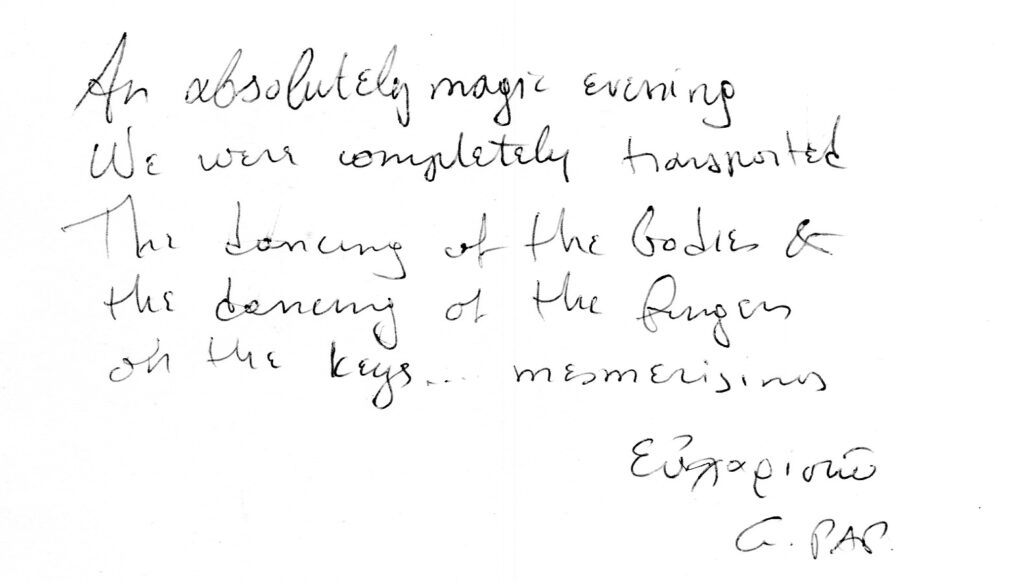 An absolutely magic evening
We were completely transported
The dancing of the bodies &
the dancing of the fingers
on the keys.... mesmerising
Εὐχαριστῶ
G. PAP.